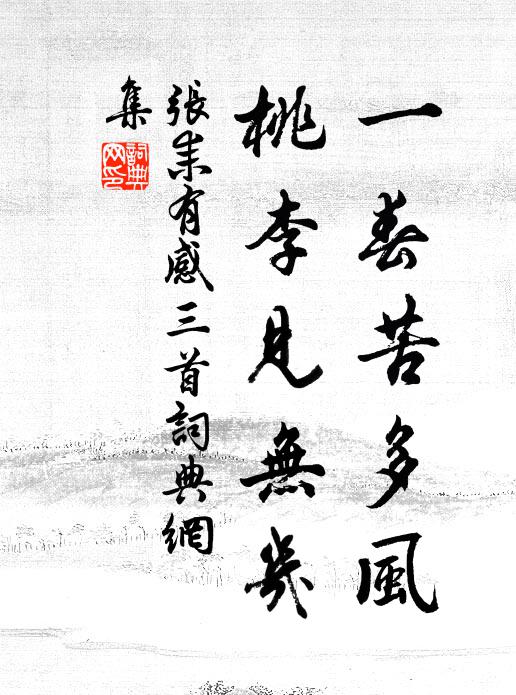 一春苦多風
桃李見無幾
張耒有感三首詞典網
集
詞典
网印